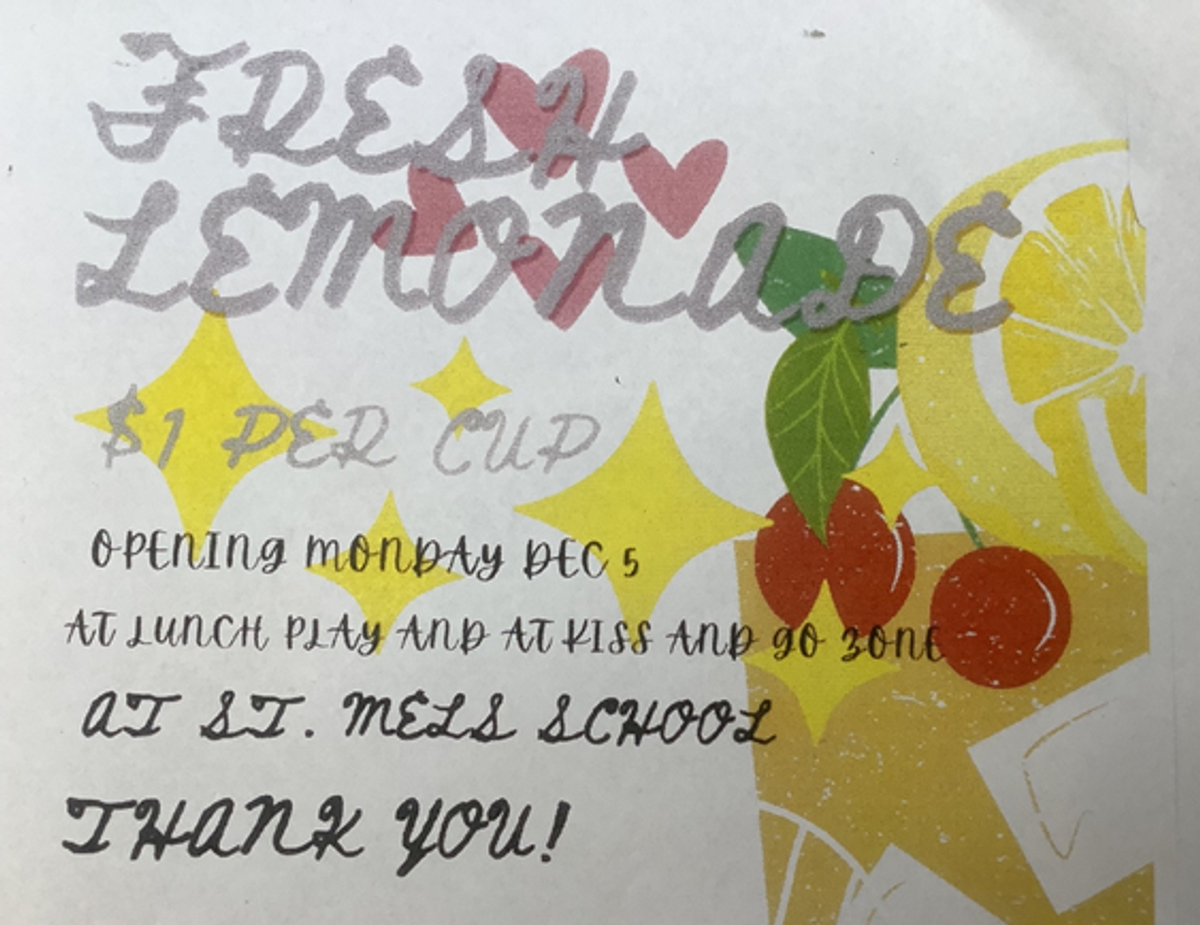 FRESH
LEMONADE
$1 PER CUP
OPENING MONDAY DEC 5
AT LUNCH PLAY AND AT KISS AND GO ZONE
AT ST. MELS SCHOOL
THANK YOU!